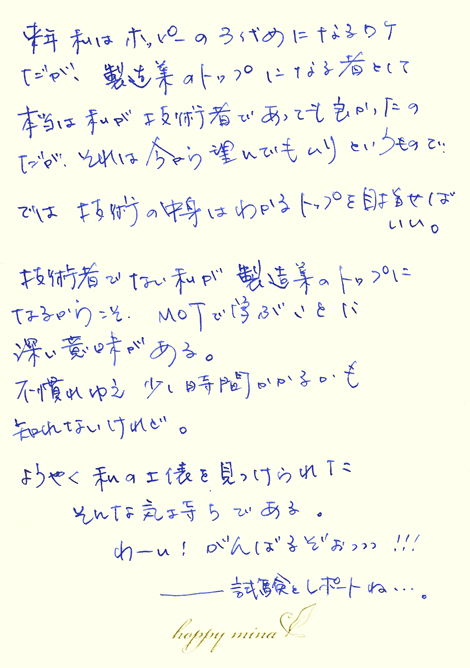 来年 私は ホッパーの 3代めに なるワケ
だが、製造業のトップに なる者として
本当は 私が 技術者であっても良かったの
だが、それは今から望んでもムリというもので…
では 技術の中身はわかるトップを目指せば
いい。
技術者でない私が 製造業のトップに
なるからこそ、MOTで学ぶことに
深い意味がある。
不慣れゆえ 少し時間がかかるかも
知れないけれど。
ようやく 私の土俵を見つけられた
そんな気持ちである。
わーい! がんばるぞぉっっっ!!!
――試験とレポートね…。
happy mina